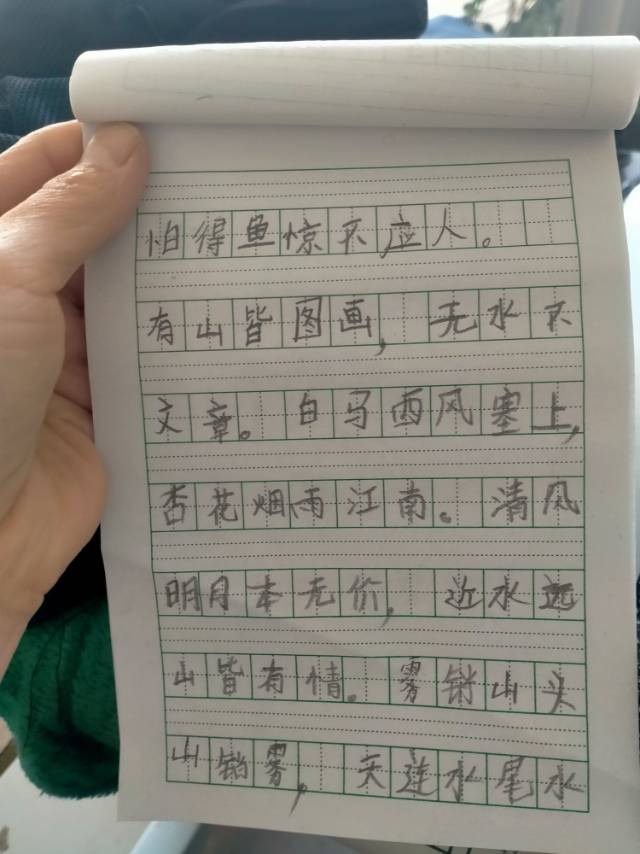 怕得鱼惊不应人。
有山皆图画，无水不
文章。白马西风塞上，
杏花烟雨江南。清风
明月本无价，近水远
山皆有情。雾锁山头
山锁雾，天连水尾水